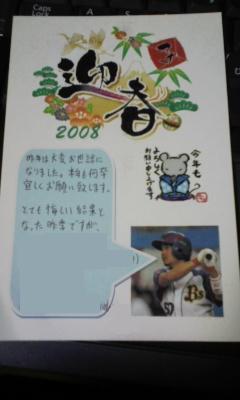 Caps Lock
迎春
2008
今年も
よろしく
お願い申し上げます
昨年は大変お世話に
なりました。本年も何卒
宜しくお願い致します。
とても悔しい結果と
なった昨季ですが、
Bs